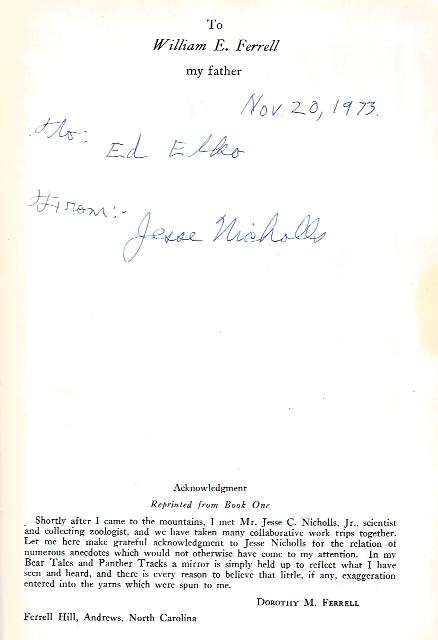 To
William E. Ferrell
my father
Nov. 20, 1973.
To:
Ed Elko
From:-
Jesse Nicholls
Acknowledgment
Reprinted from Book One
Shortly after I came to the mountains, I met Mr. Jesse C. Nicholls, Jr., scientist
and collecting zoologist, and we have taken many collaborative work trips together.
Let me here make grateful acknowledgment to Jesse Nicholls for the relation of
numerous anecdotes which would not otherwise have come to my attention. In my
Bear Tales and Panther Tracks a mirror is simply held up to reflect what I have
seen and heard, and there is every reason to believe that little, if any, exaggeration
entered into the yarns which were spun to me.
Dorothy M. Ferrell
Ferrell Hill, Andrews, North Carolina